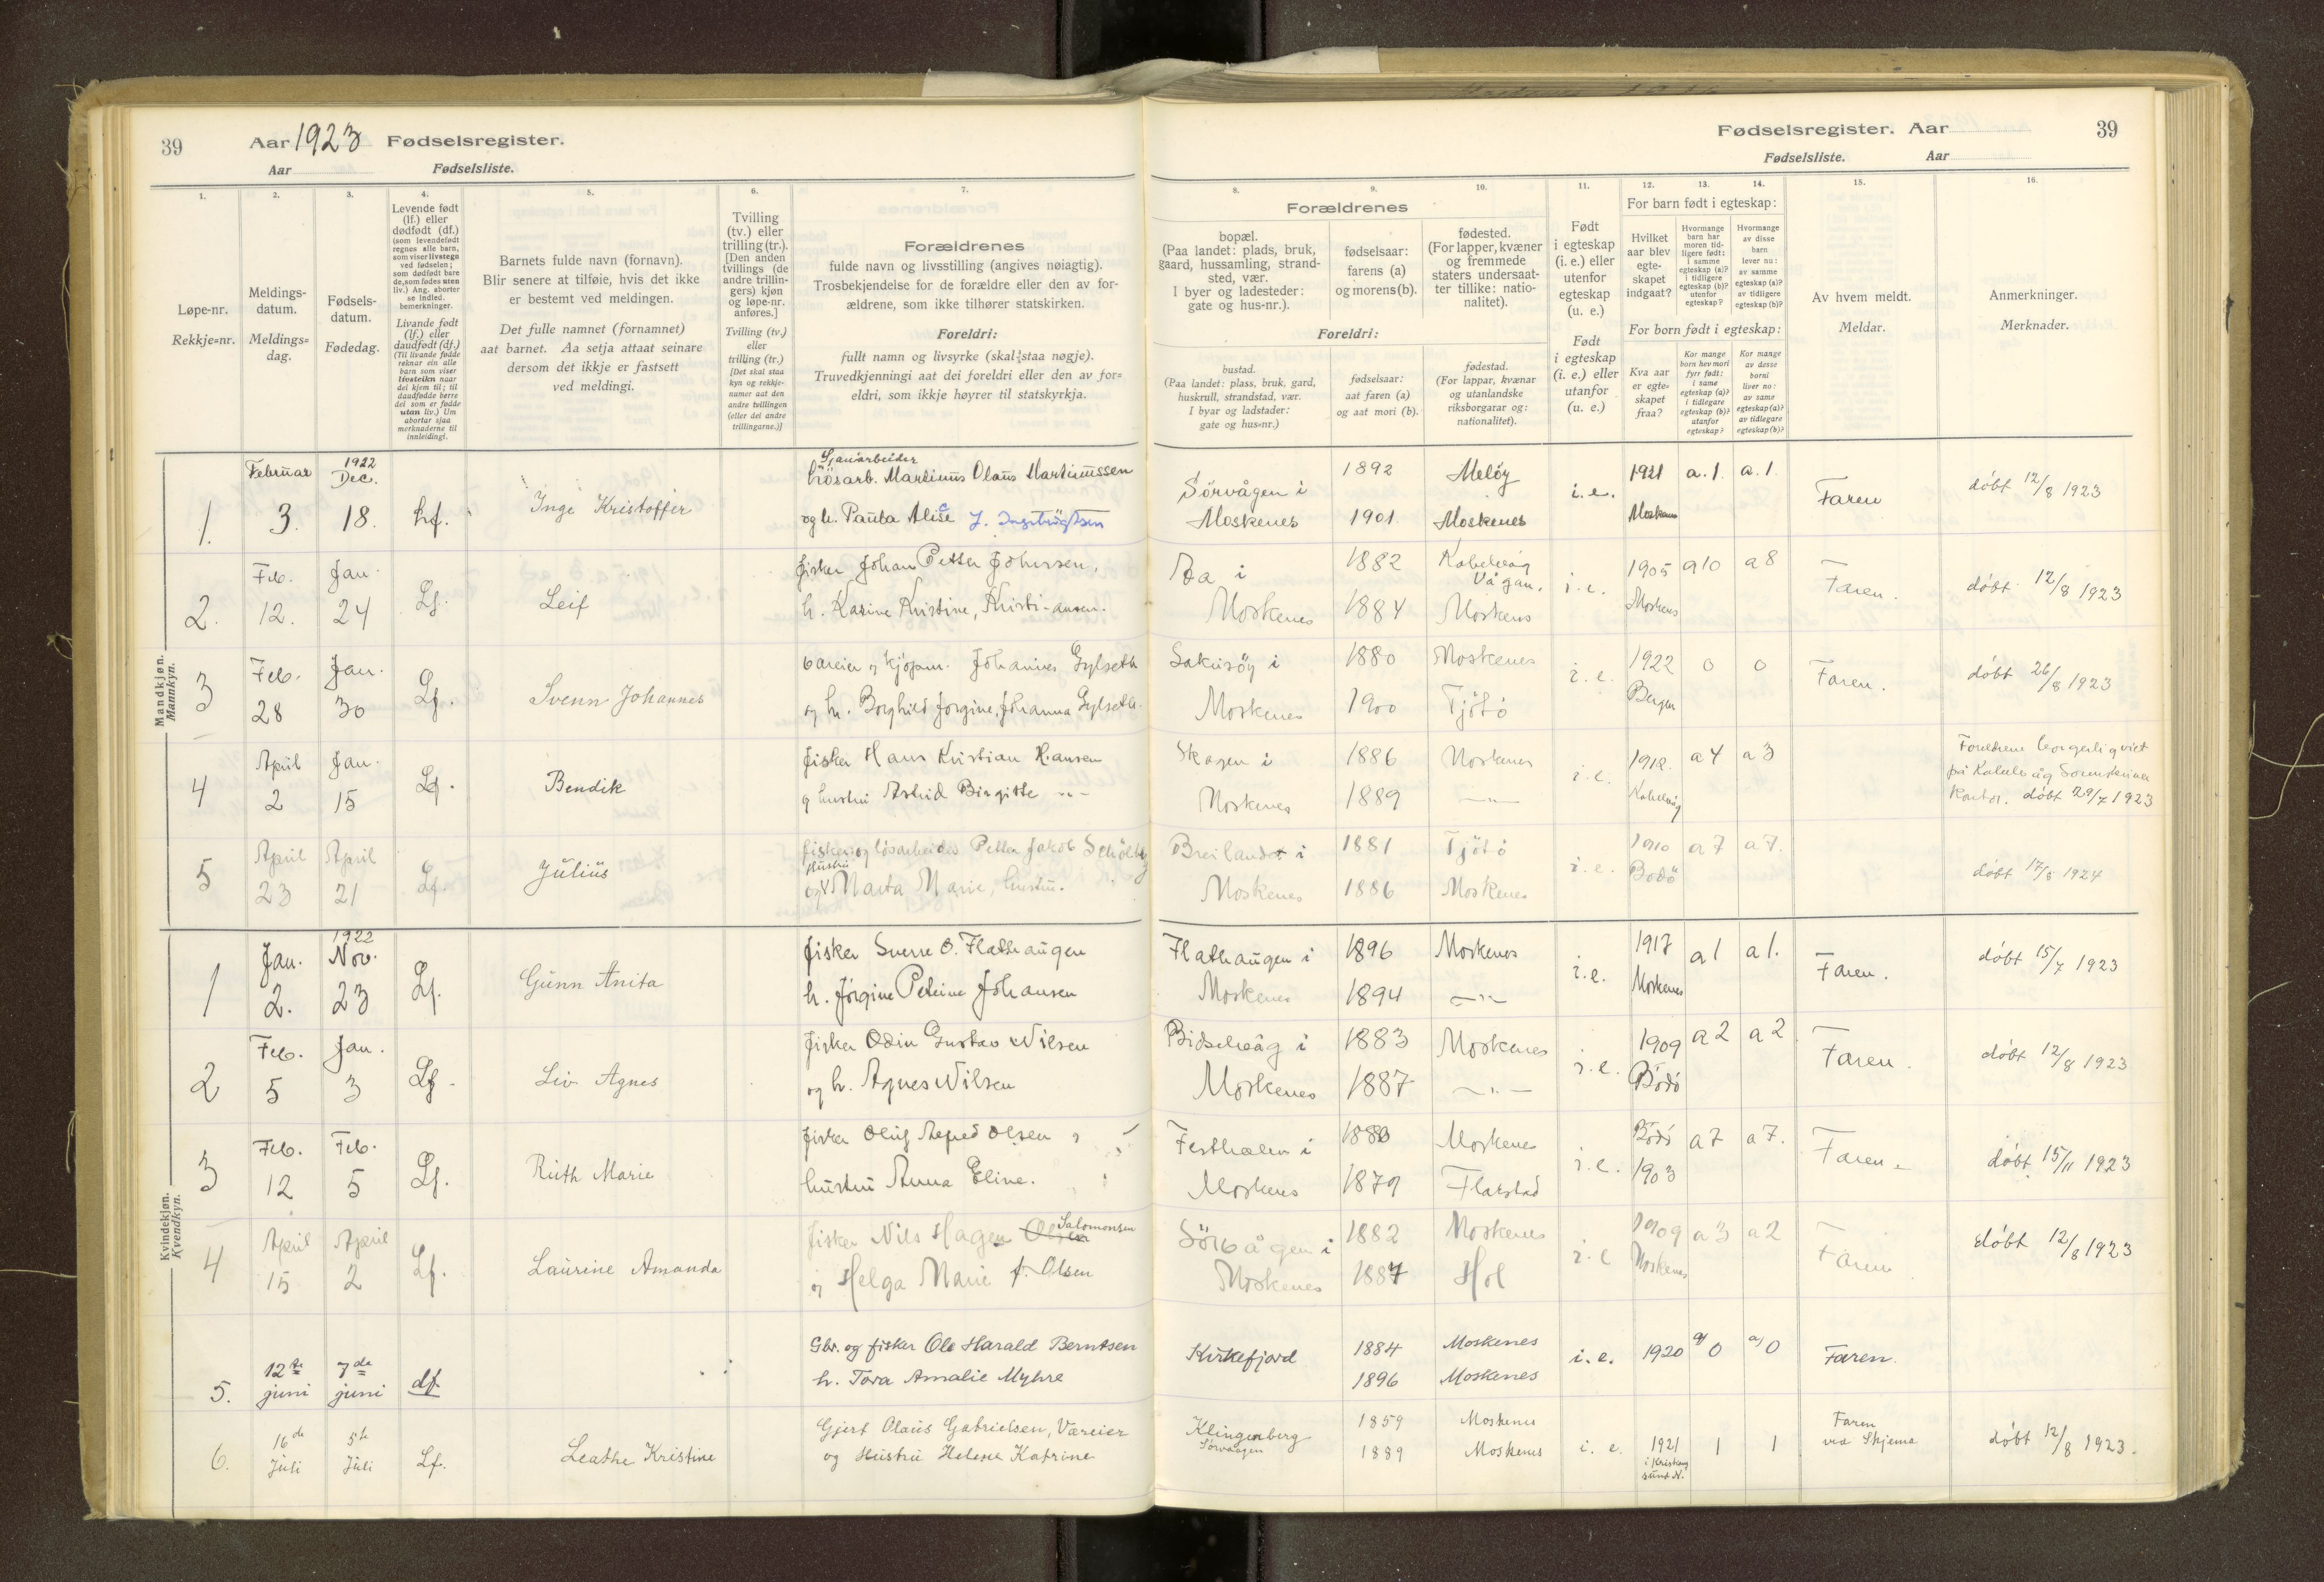 39
Aar 1923 Fødselsregister.
Aar Fødselsliste.
1. 2. 3. 4. 5. 6. 7.
Løpe-nr.
Rekkje=nr.
Meldings-
datum.
Meldings=
dag.
Fødsels-
datum.
Fødedag.
Levende født
(lf.) eller
dødfødt (df.)
(som levendefødt
regnes alle barn,
som viser livstegn
ved fødselen;
som dødfødt bare
de, som fødes uten
liv.) Ang. aborter
se indled.
bemerkninger.
Livande født
(lf.) eller
daudfødt (df.)
(Til livande fødde
reknar ein alle
barn som viser
livsteikn naar
dei kjem til; til
daudfødde berre
dei som er fødde
utan liv.) Um
abortar sjaa
merknaderne til
innleidingi.
Barnets fulde navn (fornavn).
Blir senere at tilføie, hvis det ikke
er bestemt ved meldingen.
Det fulle namnet (fornamnet)
aat barnet. Aa setja attaat seinare
dersom det ikkje er fastsett
ved meldingi.
Tvilling
(tv.) eller
trilling (tr.).
[Den anden
tvillings (de
andre trillin-
gers) kjøn
og løpe-nr.
anføres.]
Tvilling (tv.)
eller
trilling (tr.)
[Det skal staa
kyn og rekkje-
numer aat den
andre tvillingen
(eller dei andre
trillingarne.)]
Forældrenes
fulde navn og livsstilling (angives nøiagtig).
Trosbekjendelse for de forældre eller den av for-
ældrene, som ikke tilhører statskirken.
Foreldri:
fullt namn og livsyrke (skal staa nøgje).
Truvedkjenningi aat dei foreldri eller den av for=
eldri, som ikkje høyrer til statskyrkja.
Mandkjøn.
Mannkyn.
1. Februar 3. 1922 Dec. 18. Lf. Inge Kristoffer
Sjauarbeider
Lösarb. Martinus Olaus Martinussen
og h. Paula Alise J. Ingebrigtsen
2. Feb. 12. Jan. 24 Lf. Leif
fisker Johan Petter Johnsen,
h. Karine Kristine, Kristi-ansen.
3 Feb. 28 Jan. 30 Lf. Svenn Johannes
væreier og kjøpm. Johannes Gylseth
og h. Borghild Jorgine, Johanna Gylseth.
4 April 2 Jan. 15 Lf. Bendik
fisker Hans Kristian Hansen
og hustru Astrid Birgitte -"-
5 April 23 April 21 Lf. Julius
fisker og løsarbeider Petter Jakob
Hustru
og Marta Marie, hustru.
Kvindekjøn.
Kvendkyn.
1 Jan. 2. 1922 Nov. 23 Lf. Gunn Anita
fisker Sverre O. Flathaugen
h. Jörgine Peteine Johansen
2 Feb. 5 Jan. 3 Lf. Liv Agnes
fisker Odin Gustav Nilsen
og h. Agnes Nilsen
3 Feb. 12 Feb. 5 Lf. Ruth Marie
fisker Oluf Olsen
hustru Anna Eline.
4 April 15 April 2 Lf. Laurine Amanda
fisker Nils Hagen Olsen Salomonsen
og Helga Marie f. Olsen
5. 12te juni 7de juni df.
Gbr. og fisker Ole Harald Berntsen
h. Tora Amalie Myhre
6. 16de Juli 5te Juli Lf. Leathe Kristine
Gjert Olaus Gabrielsen, Væreier
og Hustru Helene Katrine
Fødselsregister. Aar
39
Fødselsliste. Aar
8. 9. 10. 11. 12. 13. 14. 15. 16.
Forældrenes
bopæl.
(Paa landet: plads, bruk,
gaard, hussamling, strand-
sted, vær.
I byer og ladesteder:
gate og hus-nr.).
fødselsaar:
farens (a)
og morens (b).
fødested.
(For lapper, kvæner
og fremmede
staters undersaat-
ter tillike: natio-
nalitet).
Foreldri:
bustad.
(Paa landet: plass, bruk, gard,
huskrull, strandstad, vær.
I byar og ladstader:
gate og hus=nr.)
fødselsaar:
aat faren (a)
og aat mori (b).
fødestad.
(For lappar, kvænar
og utanlandske
riksborgarar og:
nationalitet).
Født
i egteskap
(i. e.) eller
utenfor
egteskap
(u. e.)
Født
i egteskap
(i. e.) eller
utanfor
(u. e.)
For barn født i egteskap:
Hvilket
aar blev
egte-
skapet
indgaat?
Hvormange
barn har
moren tid-
ligere født:
i samme
egteskap (a)?
i tidligere
egteskap (b)?
utenfor
egteskap?
Hvormange
av disse
barn
lever nu:
av samme
egteskap (a)?
av tidligere
egteskap (b)?
For born født i egteskap:
Kva aar
er egte-
skapet
fraa?
Kor mange
born hev mori
fyrr født:
i same
egteskap (a)?
i tidlegare
egteskap (b)?
utanfor
egteskap?
Kor mange
av desse
borni
liver no:
av same
egteskap (a)?
av tidlegare
egteskap (b)?
Av hvem meldt.
Meldar.
Anmerkninger.
Merknader.
Sörvågen i 1892 Meløy i.e. 1921 a.1. a.1. Faren döbt 12/8 1923
Moskenes 1901 Moskenes Moskenes
Aa i 1882 Kabelvåg Vågan. i.e. 1905 a10 a8 Faren. döbt 12/8 1923
Moskenes 1884 Moskenes Moskenes
Sakrisöy i 1880 Moskenes i.e. 1922 0 0 Faren. döbt 26/8 1923
Moskenes 1900 Tjötö Bergen
Skagen i 1886 Moskenes i.e. 1912. a4 a3 Foreldrene borgerlig viet
på Kabelvåg Sorenskriver
Moskenes 1889 -"- Kabelvåg kontor. döbt 29/7 1923
Breilandet i 1881 Tjötö i.e. 1910 a7 a7. döbt 17/8 1924
Moskenes 1886 Moskenes Bodö
Flathaugen i 1896 Moskenes i.e. 1917 a1 a1. Faren. döbt 15/7 1923
Moskenes 1894 -"- Moskenes
1883 Moskenes i.e. 1909 a2 a2 Faren. döbt 12/8 1923
Moskenes 1887 -"- Bodö
Festhælen i 1880 Moskenes i.e. Bodö a7 a7. Faren. döbt 15/11 1923
Moskenes 1879 Flakstad 1903
Sörvågen i 1882 Moskenes i.e 1909 a3 a2 Faren döbt 12/8 1923
Moskenes 1887 Hol Moskenes
Kirkefjord 1884 Moskenes i.e. 1920 a/0 a/0 Faren.
1896 Moskenes
Klingenberg 1859 Moskenes Faren
Sørvaagen 1889 Moskenes i. e. 1921 1 1 ved Skjema döbt 12/8 1923.
i Kristian
sund N.